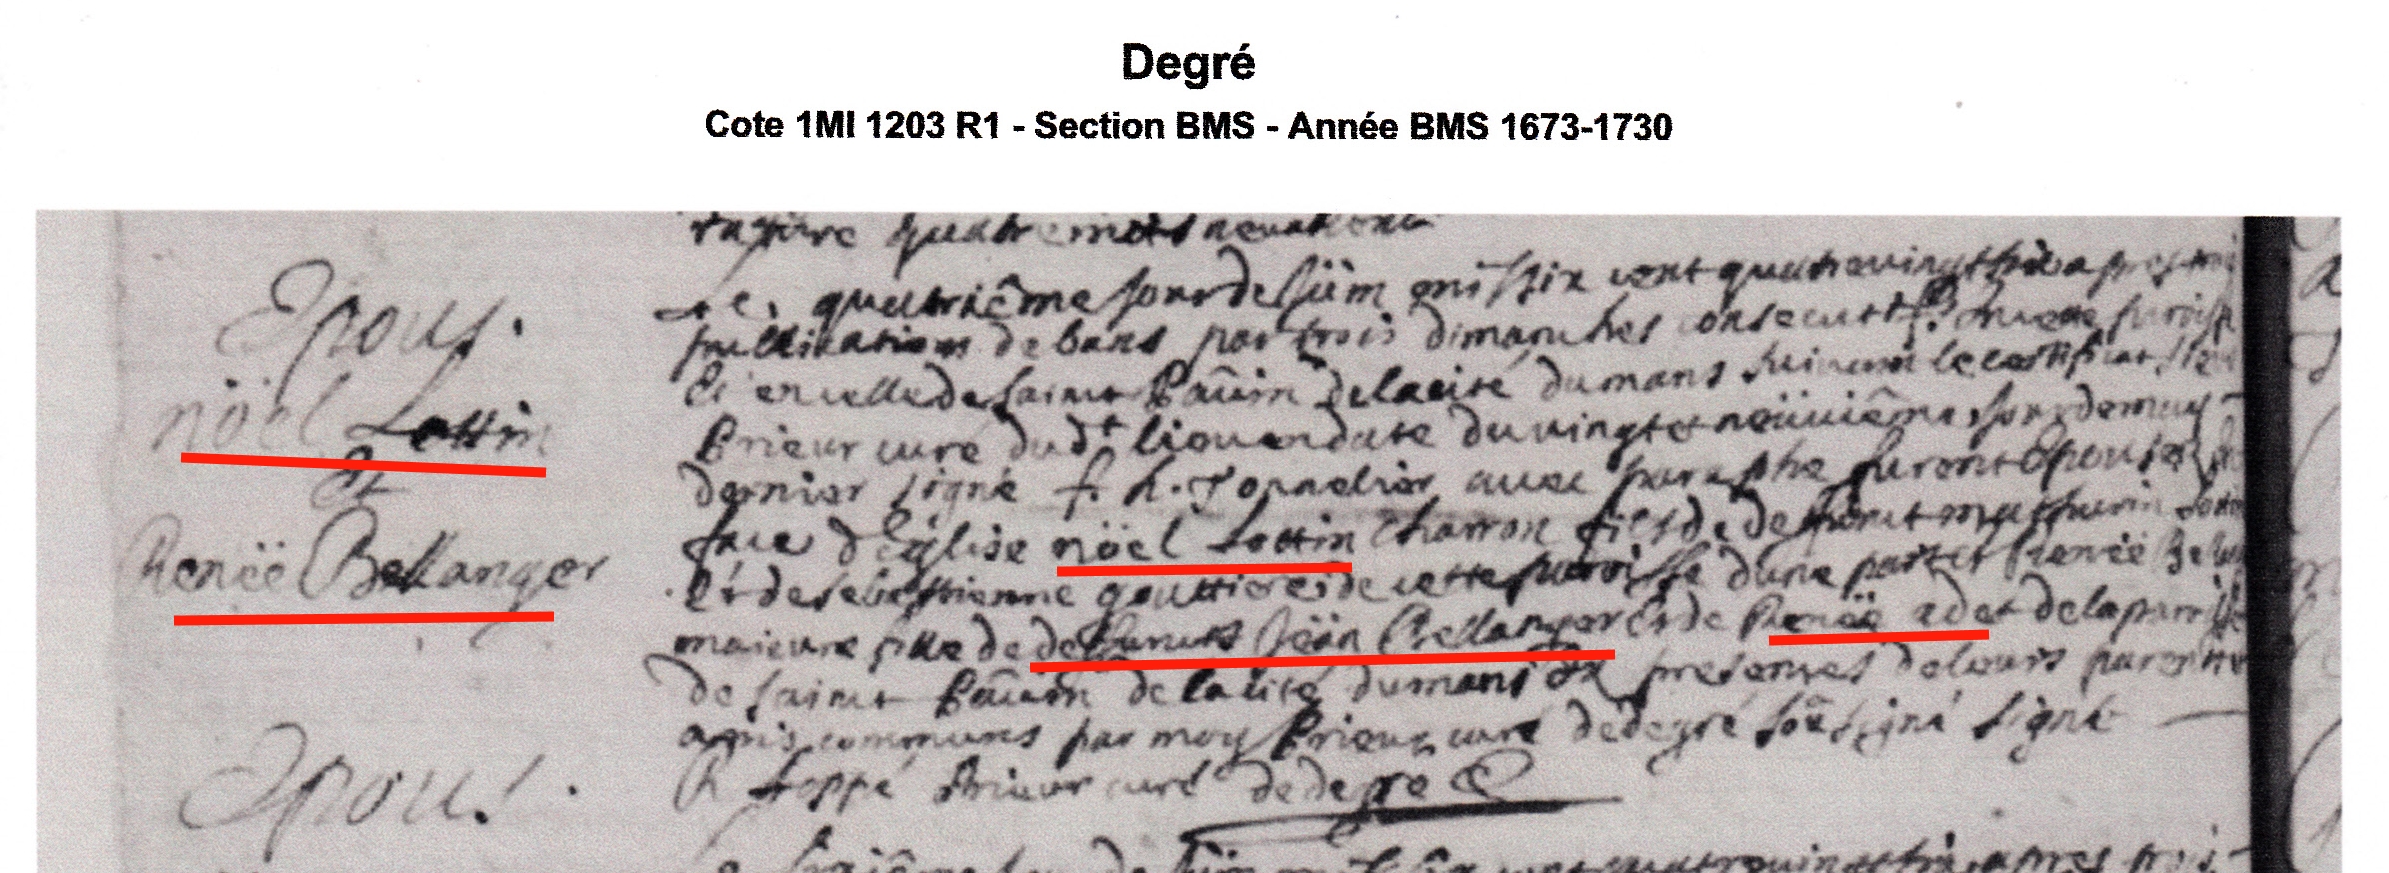 Degré
Cote 1MI 1203 R1 - Section BMS - Année BMS 1673-1730
rature quatre mots
Epous.
nöel Lottin
Et
Renëe Bellanger
Le quatriême jour de juin mil six cent quatrevingt apres
publications de bans par trois dimanches consecutifs
Et en celle de saint Paüin de la cité du mans suivant le certificat
Prieur curé dud^t lieu en date du vingt et neüuiême jour de may
dernier signé f. h. Tornelier avec paraphe furent Epousez
face d'Eglise nöel Lottin charron fils de defunt mathurin
Et de sebastienne gouttiere de cette paroisse d'une part et Renëe
majeure fille de defunts Jëan Bellanger Et de Renëe adet de la paroisse
de saint Paüin de la cité du mans En presences de leurs parents
amis communs par moy Prieur curé de degré soûsigné signé
R foppé Prieur curé de degré
Epous.